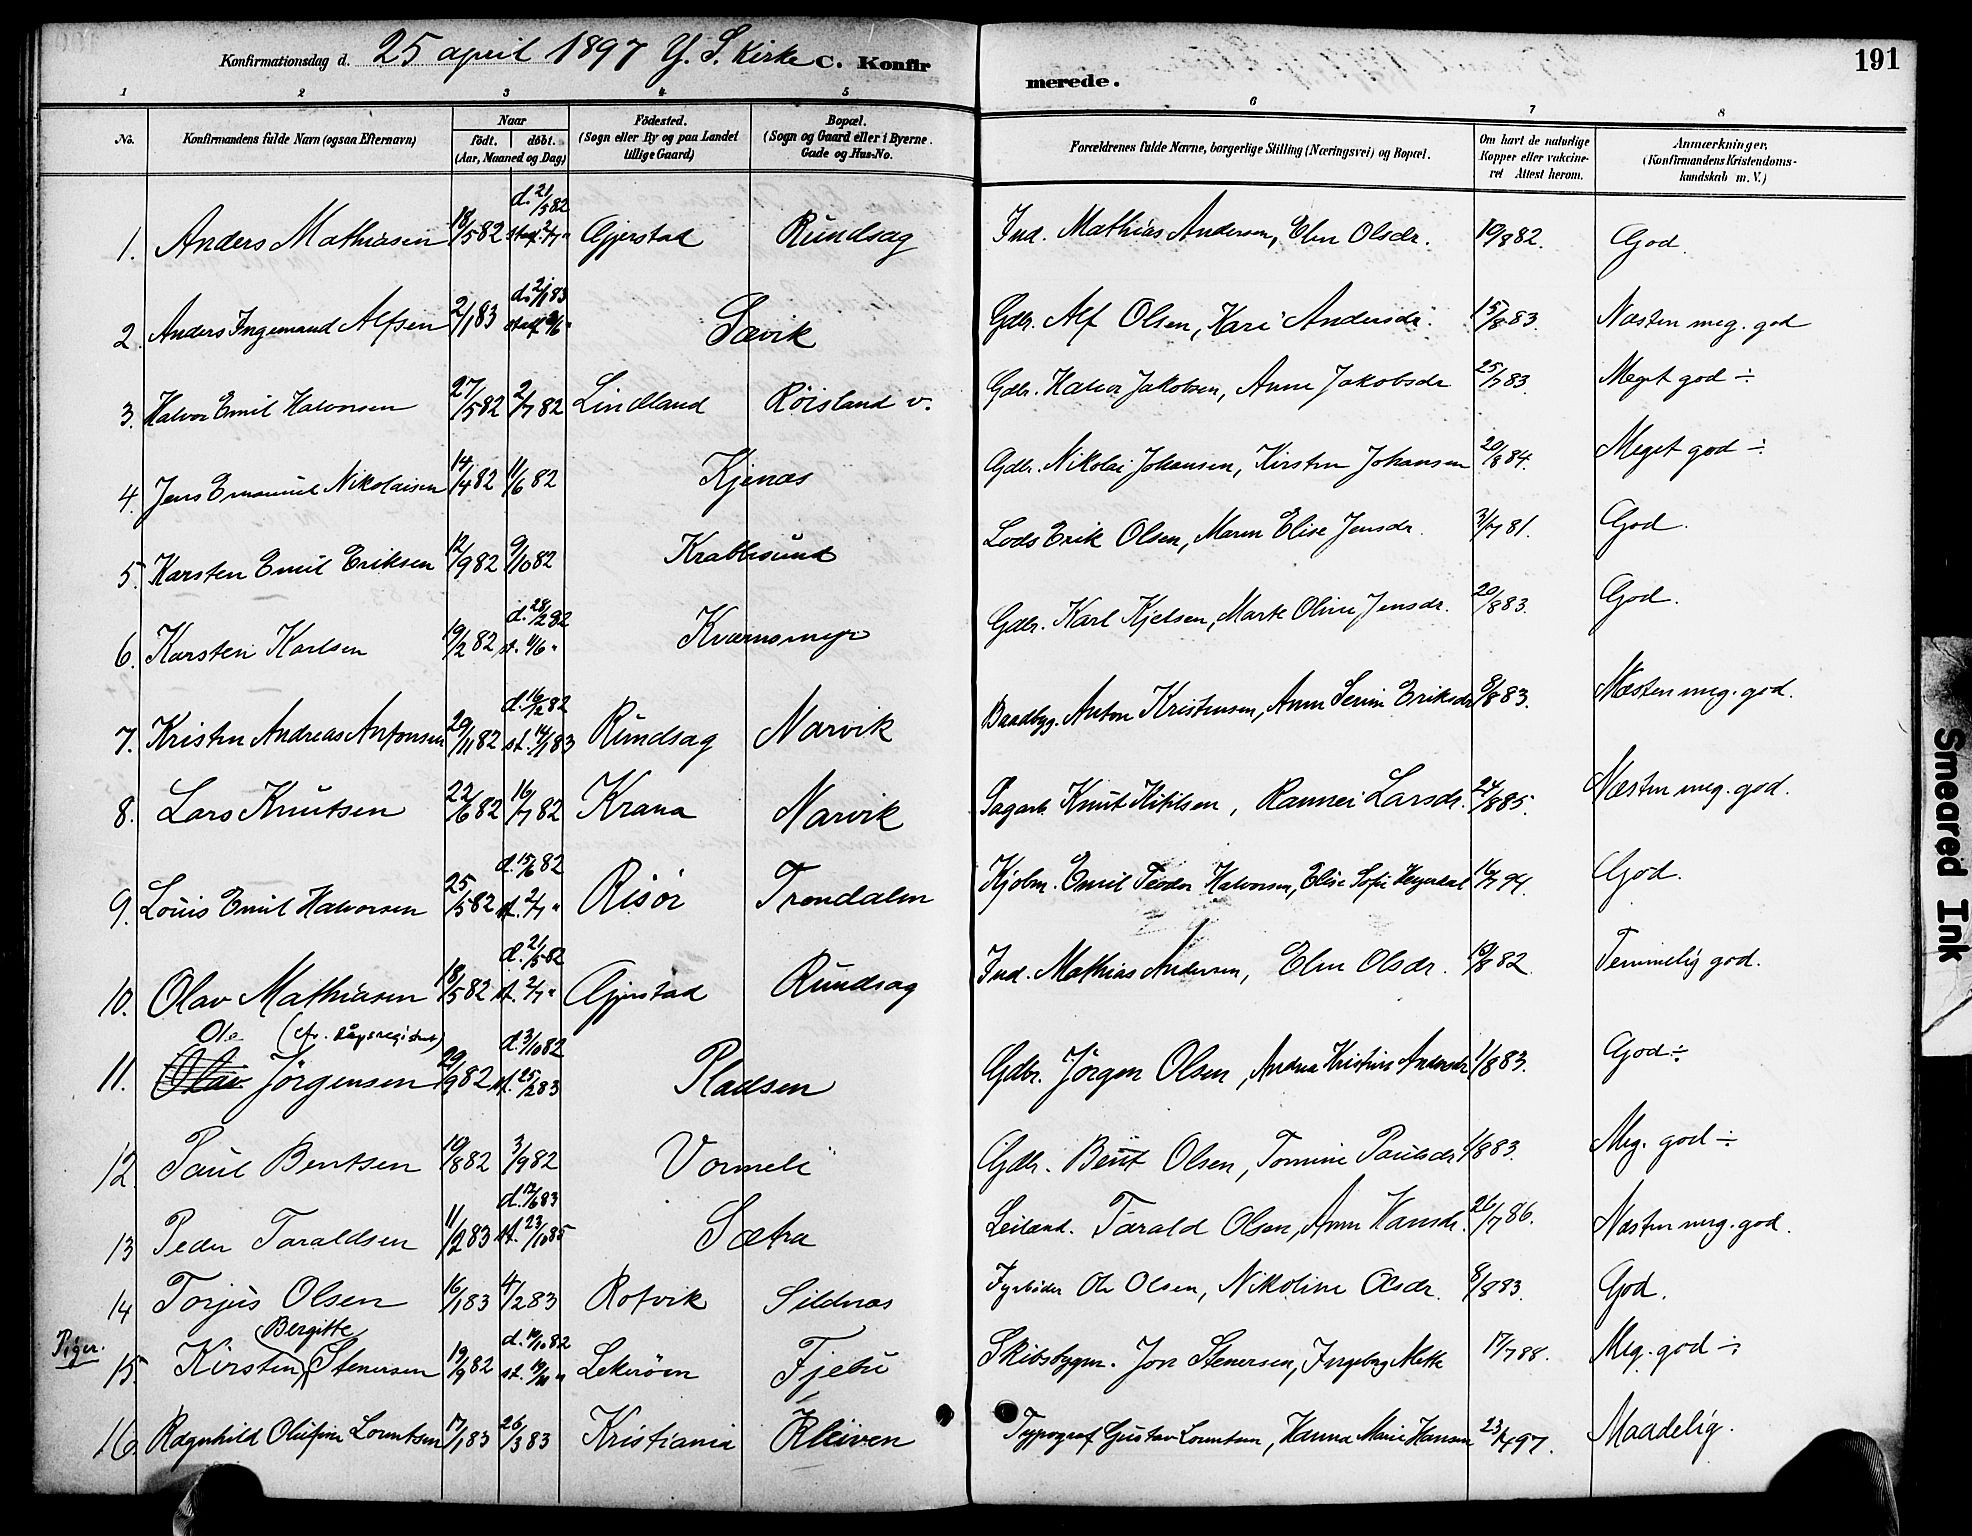 Konfirmationsdag d. 25 april 1897 Y. S. Kirke C. Konfirmerede. 191
1 2 3 4 5 6 7 8
No. Konfirmandens fulde Navn (ogsaa Efternavn) Naar født. døbt. (Aar, Maaned og Dag) Fødested. (Sogn eller By og paa Landet tillige Gaard) Bopæl. (Sogn og Gaard eller i Byerne. Gade og Hus-No. Forældrenes fulde Navne, borgerlige Stilling (Næringsvei) og Bopæl. Om havt de naturlige Kopper eller vakcineret Attest herom. Anmærkninger. (Konfirmandens Kristendomskundskab m. V.)
1. Anders Mathiasen 18/5 82 d. 21/5 82 stadf. 2/7 " Gjerstad Rundsag Ind. Mathias Andersen, Elen Olsdr. 10/8 82. God.
2. Anders Ingemand Alfsen 2/1 83 d. 2/1 83 stadf. Sævik Gdbr. Alf Olsen, Kari Andersdr. 15/8 83. Næsten meg. god
3. Halvor Emil Halvorsen 27/5 82 2/7 82 Lindland Røisland v. Gdbr. Halvor Jakobsen, Anne Jakobsdr 25/7 83. Meget god ÷
4. Jens Emanuel Nikolaisen 14/4 82 11/6 82 Kjenæs Gdbr. Nikolai Johansen, Kirsten Johansen 20/8 84. Meget god ÷
5. Karsten Emil Eriksen 12/9 82 9/10 82 Krabbesund Lods Erik Olsen, Maren Elise Jensdr. 3/7 81. God.
6. Karsten Karlsen 19/2 82 d. 28/2 82 st. 11/6 " Kværnsmyr Gdbr. Karl Kjelsen, Marte Oline Jensdr. 20/8 83. God.
7. Kristen Andreas Antonsen 20/11 82 d. 16/12 82 st. 14/1 83 Rundsag Narvik Baadbyg. Anton Kristensen, Anne Serine Eriksdr 8/8 83. Næsten meg. god.
8. Lars Knutsen 22/6 82 16/7 82 Krana Narvik Sagarb. Knut Kitilsen, Rannei Larsdr. 24/8 85. Næsten meg. god.
9. Louis Emil Halvorsen 25/5 82 d. 15/6 82 st. 2/7 " Risør Trondalen Kjøbm. Emil Teodor Halvorsen, Elise Sofie Heyerdal 16/7 94. God.
10. Olav Mathiasen 18/5 82 d. 21/5 82 st. 2/7 " Gjerstad Rundsag Ind. Mathias Andersen, Elen Olsdr. 10/8 82. Temmelig god.
Ole (cfr. dåpsregistret)
11. Olav Jørgensen 29/9 82 d. 3/10 82 st. 25/2 83 Pladsen Gdbr. Jørgen Olsen, Andrea Kristine Andersdr 1/8 83. God ÷
12. Paul Bentsen 10/8 82 3/9 82 Vormeli Gdbr. Bent Olsen, Tomine Paulsdr 1/8 83. Meg. god ÷
13 Peder Taraldsen 11/2 83 d. 17/6 83 st. 23/10 85 Sætra Leilænd. Tarald Olsen, Anne Hansdr. 26/7 86. Næsten meg. god.
14 Torjus Olsen 16/1 83 4/2 83 Rotvik Sildnæs Fyrbøder Ole Olsen, Nikoline Olsdr. 8/8 83. God.
Piger.
15. Kirsten Bergitte Stenersen 19/9 82 d. 14/10 82 st. 19/11 " Lekerøen Fjebu Skibsbygm. Jon Stenersen, Ingeborg Mette 17/7 88. Meg. god ÷
16. Ragnhild Olufine Lorentsen 17/1 83 26/3 83 Kristiania Kleiven Typograf Gustav Lorentsen, Hanna Marie Hansen 23/4 97. Maadelig.
Smeared Ink